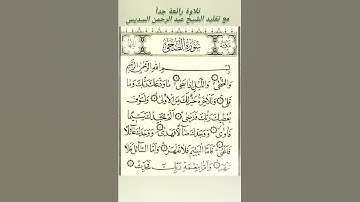 تلاوة رائعة جداً
مع تقليد الشيخ عبد الرحمن السديس
سُورَةُ الضُّحَى
بِسْمِ اللَّهِ الرَّحْمَنِ الرَّحِيمِ
وَالضُّحَى وَاللَّيْلِ إِذَا سَجَى مَا وَدَّعَكَ رَبُّكَ وَمَا
قَلَى وَلَلْآخِرَةُ خَيْرٌ لَكَ مِنَ الْأُولَى وَلَسَوْفَ
يُعْطِيكَ رَبُّكَ فَتَرْضَى أَلَمْ يَجِدْكَ يَتِيمًا
فَآوَى وَوَجَدَكَ ضَالًّا فَهَدَى وَوَجَدَكَ عَائِلًا
فَأَغْنَى فَأَمَّا الْيَتِيمَ فَلَا تَقْهَرْ وَأَمَّا السَّائِلَ فَلَا
تَنْهَرْ وَأَمَّا بِنِعْمَةِ رَبِّكَ فَحَدِّثْ